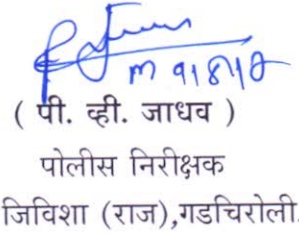 ( पी. व्ही. जाधव )
पोलीस निरीक्षक
जिविशा (राज),गडचिरोली